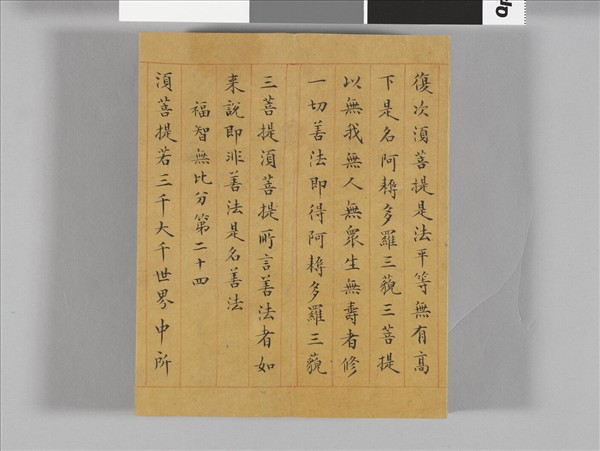 復次湏菩提是法平等無有高
下是名阿耨多羅三藐三菩提
以無我無人無眾生無壽者修
一切善法即得阿耨多羅三藐
三菩提湏菩提所言善法者如
来說即非善法是名善法
福智無比分第二十四
湏菩提若三千大千世界中所